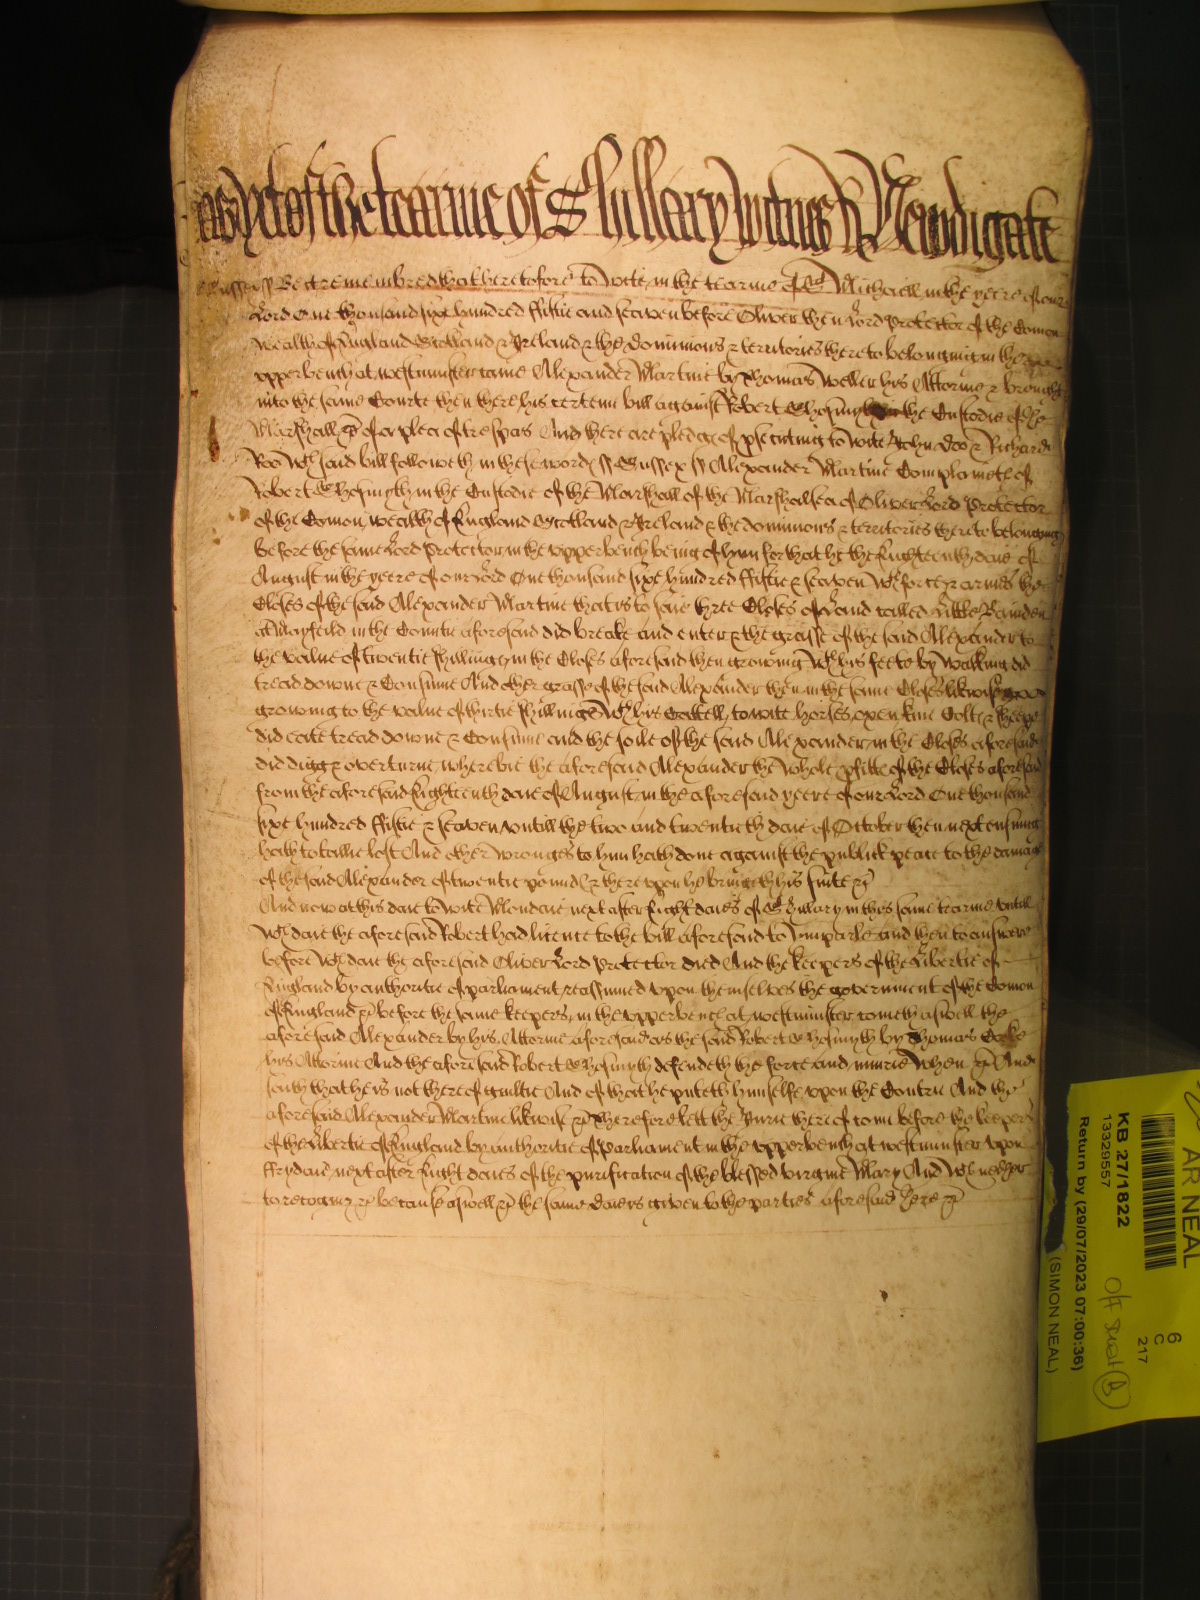 as yet of the tearme of St Hillary witnes R Newdigate
Sussex ss Be it remembred that heretofore to witt in the tearme of St Michaell in the yeere of our
Lord One thousand sixe hundred fiftie and seaven before Oliver then Lord Protector of the Comon
wealth of England Scotland & Ireland & the dominions & territories thereto belonging in the
upper bench at westminster came Alexander Martine by Thomas Weller his Attorne & brought
into the same Courte then there his certein bill against Robert in the Custodie of the
Marshall &c of a plea of trespas And there are pledg of psecuting to witt John Doo & Richard
Roo wch said bill followeth in these word ss Sussex ss Alexander Martine Complaineth of
Robert in the Custodie of the Marshall of the Marshalsea of Oliver Lord Protector
of the Comon wealth of England Scotland & Ireland & the dominions & territories thereto belonging
before the same Lord Protector in the upper bench being of him for that he the Eighteenth daie of
August in the yeere of our Lord One thousand sixe hundred fiftie & seaven wth force & armes the
Closes of the said Alexander Martine that is to saie three Closes of Land called Little
at Mayfeild in the Countie aforesaid did breake and enter & the grasse of the said Alexander to
the value of twentie shillings in the Closes aforesaid then growing wth his feete by walking did
tread downe & Consume And other grasse of the said Alexander then in the same Closes likwise
growing to the value of thirtie shillings wth his Cattell, to witt horses oxen kine Colt & sheepe
did eate tread downe & Consume and the soile of the said Alexander in the Closes aforesaid
did digg & overturne whereby the aforesaid Alexander the whole pfitte of the Closes aforesaid
from the aforesaid Eighteenth daie of August in the aforesaid yeere of our Lord One thousand
sixe hundred fiftie & seaven untill the two and twentieth daie of October then next ensuing
hath totallie lost And other wronges to him hath done against the publick peace to the damage
of the said Alexander of twentie pound & thereupon he bringeth his suite &c
And now at this daie to witt Mondaie next after Eight daies of St Hillary in this same tearme untill
wch daie the aforesaid Robert had licence to the bill aforesaid to Imparle and then to answere
before wch daie the aforesaid Oliver Lord Protector died And the keepers of the Libertie of
England by authoritie of parliament reassumed upon themselves the government of the Comon
of England &c before the same keepers in the upper bench at westminster cometh aswell the
aforesaid Alexander by his Attorne aforesaid as the said Robert by Thomas
his Attorine And the aforesaid Robert defendeth the force and iniurie when &c And
saith that he is not thereof guiltie And of that he puteth himselfe upon the Contrie And the
aforesaid Alexander Martine likwise &c Therefore lett the Jurie thereof come before the keepers
of the Libertie of England by authoritie of parliament in the upper bench at westminster upon
ffrydaie next after Eight daies of the purification of the blessed virgine Mary And wch neither
to recogniz &c because aswell &c the same daie is given to the parties aforesaid here &c
AR NEAL
KB 27/1822
13329557
Return by (29/07/2023 07:00:36)
(SIMON NEAL)
6
C
217